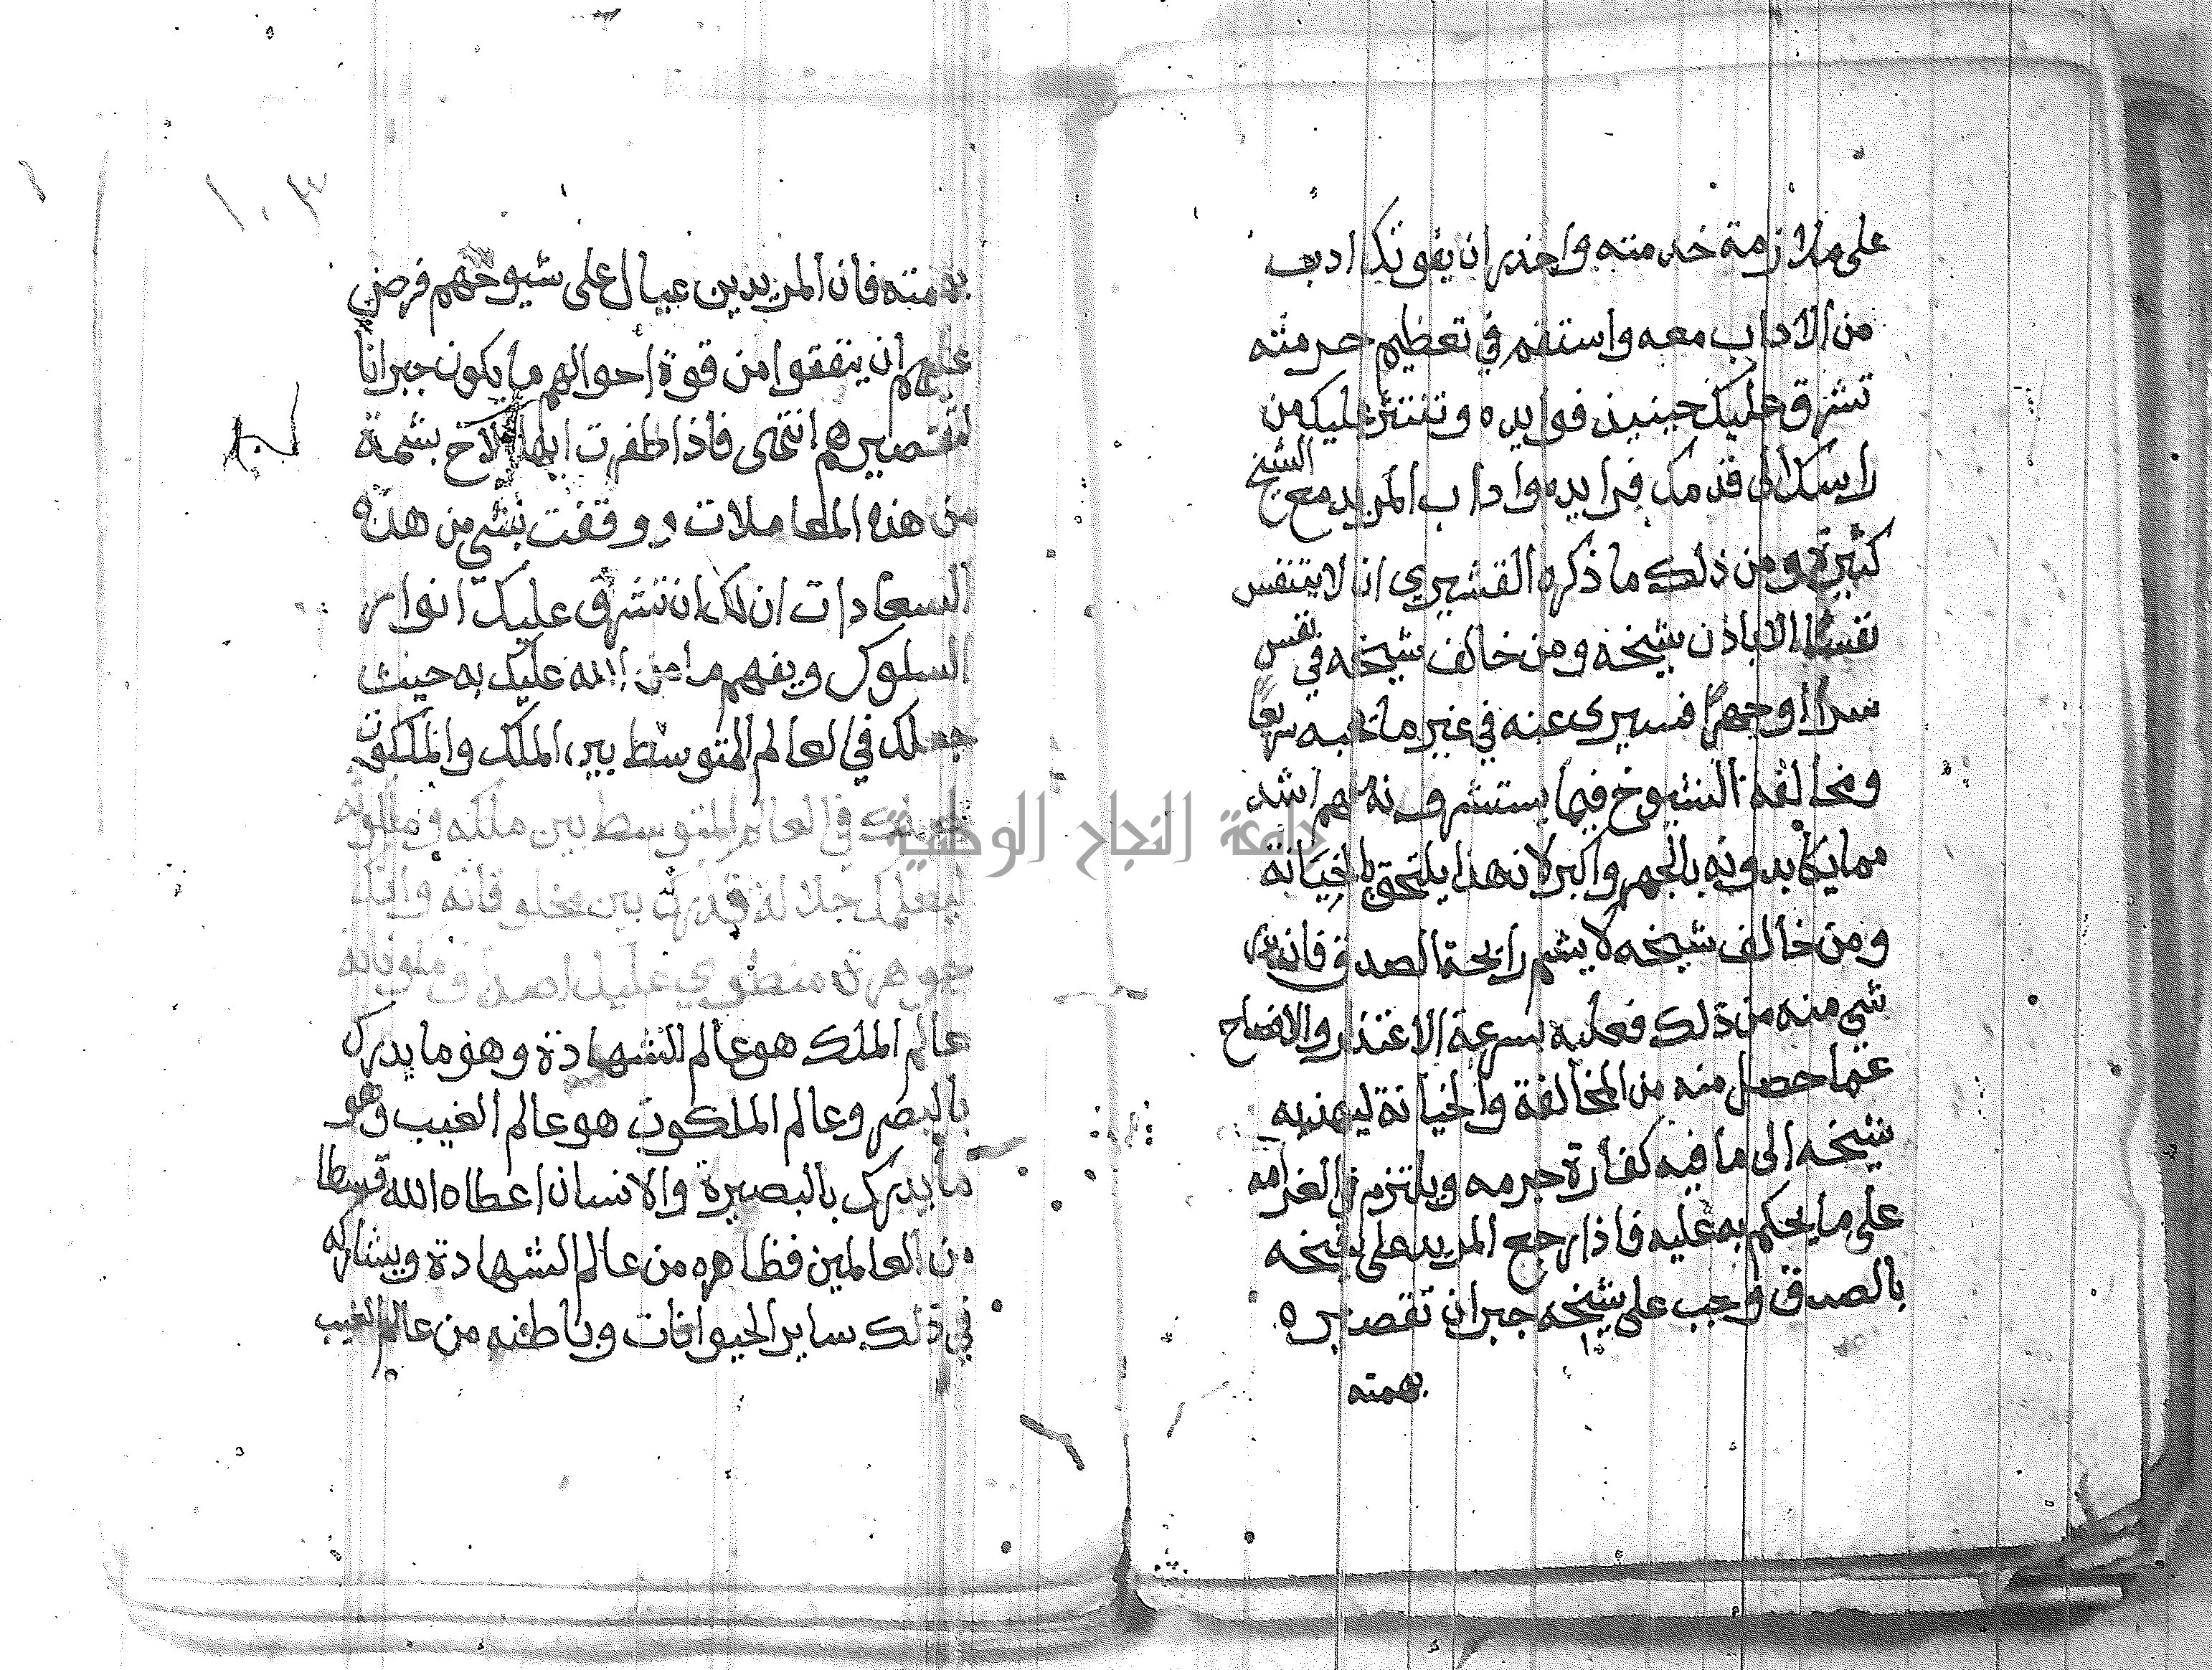 على ملازمة خدمته واحذر ان يفوتك ادب
من الاداب معه واستقم في تعظيم حرمته
تشرق عليك حينيذ فوايده وتنتثر عليك من
راسك الى قدمك فرايده واداب المريد مع الشيخ
كثيرة ومن ذلك ما ذكره القشيري ان لا يتنفس
نفسا الا باذن شيخه ومن خالف شيخه في نفس
سرا او جهرا فسيرى عنه في غير ما يحبه سريعا
ومخالفة الشيوخ فيما يستشرونه لهم اشد
مما يكابدونه بالجهر واكبر لان هذا يلتحق بالخيانة
ومن خالف شيخه لا يشم رايحة الصدق فان
شي منه من ذلك فعليه بسرعة الاعتذار والافصاح
عما حصل منه من المخالفة والخيانة ليهديه
شيخه الى ما فيه كفارة جرمه ويلتزم في الغرامه
على ما يحكم به عليه فاذا رجع المريد على شيخه
بالصدق وجب على شيخه جبران تقصيره
بهمته
بهمته فان المريدين عيال على شيوخهم فرض
عليهم ان ينفقوا من قوة احوالهم ما يكون جبرانا
لتقصيرهم انتهى فاذا ظفرت ايها الاخ بشمة
من هذه المعاملات ووقفت بشي من هذه
السعادات ان لك ان تشرق عليك انوار
السلوك ويفهم ما من الله عليك به حيث
جعلك في العالم المتوسط بين الملك والملكوت
جعلك في العالم المتوسط بين ملكه وملكوته
ليعلمك جلالة قدرك بين مخلوقاته وانك
جوهرة منطوي عليك اصداف مكوناته
عالم الملك هو عالم الشهادة وهو ما يدرك
بالبصر وعالم الملكوت هو عالم الغيب وهو
ما يدرك بالبصيرة والانسان اعطاه الله قسطا
من العالمين فظاهره من عالم الشهادة ويشاركه
في ذلك ساير الحيوانات وباطنه من عالم الغيب
جامعة النجاح الوطنية